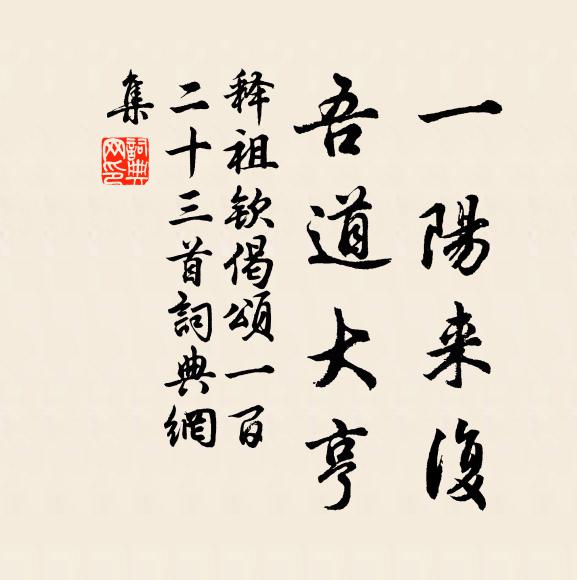 一陽来復
吾道大亨
釋祖欽偈頌一百
二十三首詞典網
集
詞典網印